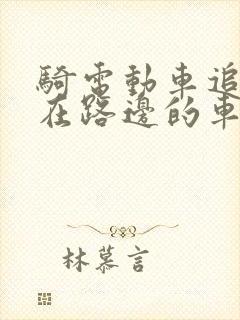 騎電動車追
在路邊的車
林慕言